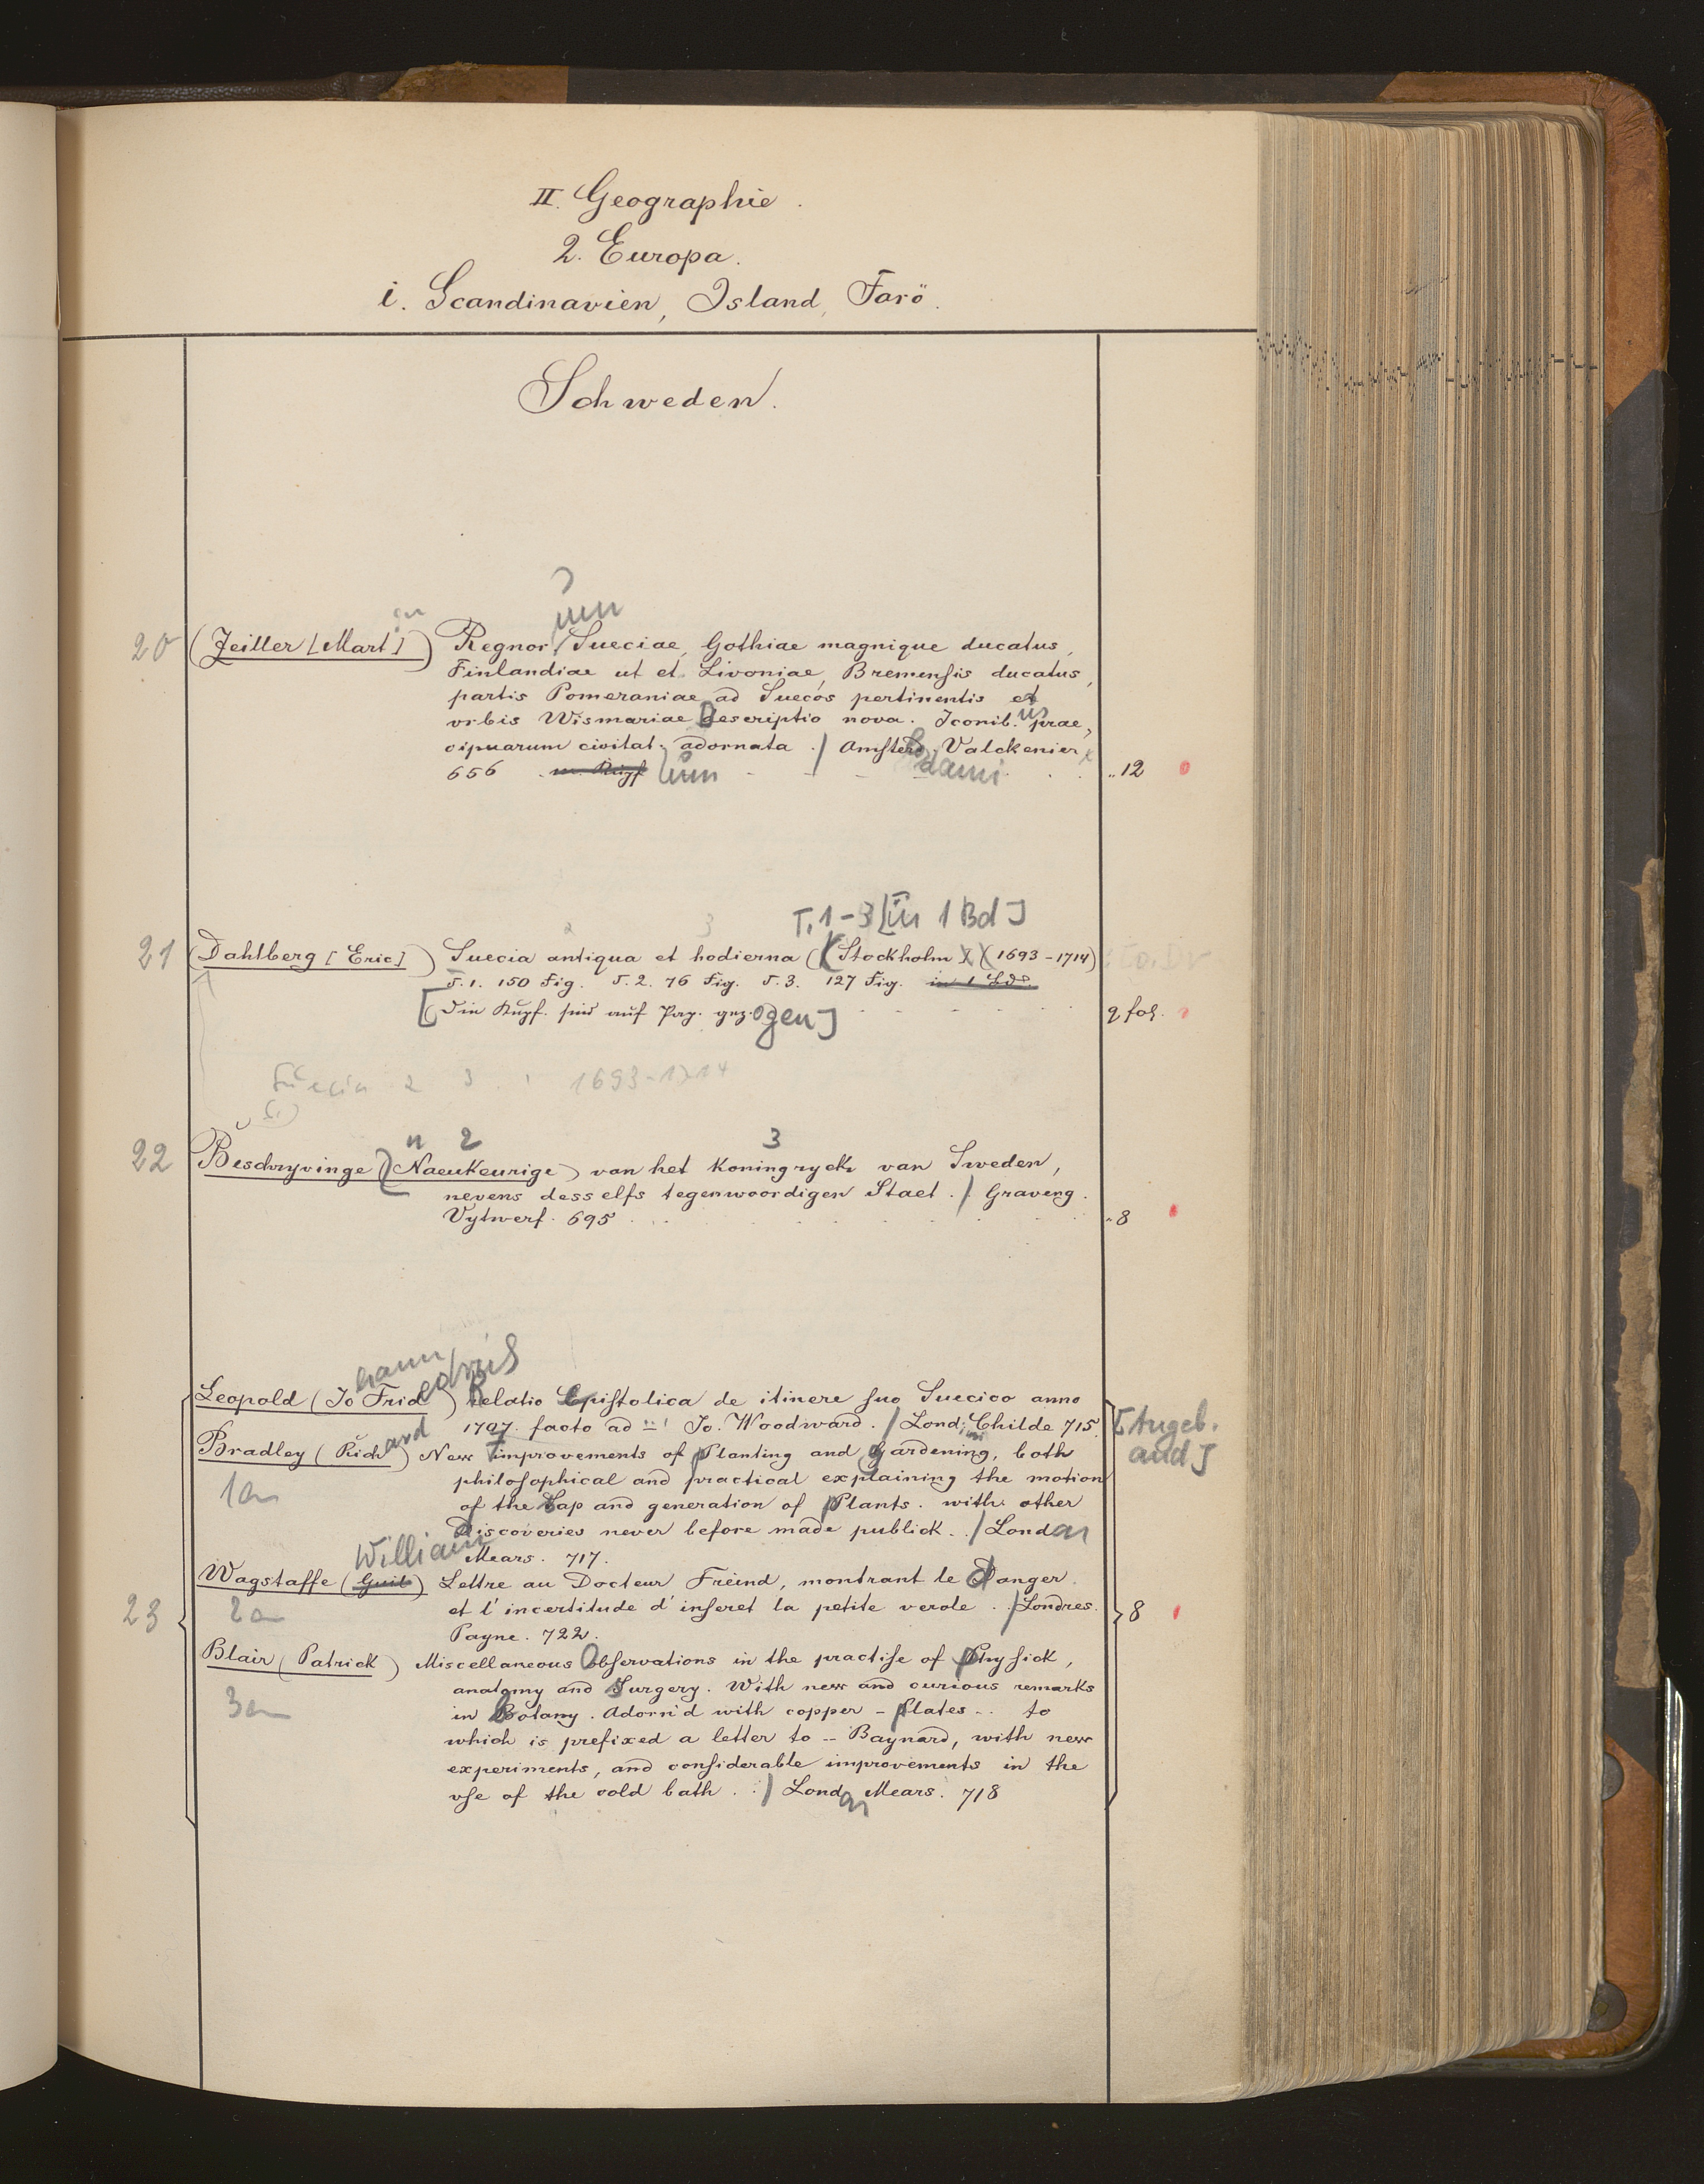 II. Geographie.
2. Europa.
i. Scandinavien, Island, Farö.
Schweden.
20 (Zeiller [Martin]) Regnorum Sueciae, Gothiae magnique ducatus,
Finlandiae ut et Livoniae, Bremensis ducatus,
partis Pomeraniae ad Suecos pertinentis et
vrbis Wismariae Descriptio nova. Iconibus prae,
cipuarum civitat. adornata. / Amsterd. Valckenier
656 m. Kupf um dami 12
T. 1-3 [in 1 Bd]
21 (Dahlberg [Eric]) Suecia antiqua et hodierna (Stockholm) (1693-1714)
T. 1. 150 Fig. T. 2. 76 Fig. T. 3. 127 Fig. in 1 Bde.
[Die Kupf. sind auf Pap. gezogen] 2 fol.
Suecia 2 3 1 1693-1714
n 2 3
22 Beschryvinge (Naeukeurige) van het Koningryck van Sweden,
nevens desselfs tegenwoordigen Staet. / Graveng.
Vytwerf. 695 8
hann edrici
Leopold (Jo Frid) Relatio Epistolica de itinere suo Suecico anno
1707 facto ad Jo. Woodward. / Londini, Childe 715. [Angeb.
Bradley (Richard) New improvements of Planting and Gardening, both and]
philosophical and practical explaining the motion
1an
of the Sap and generation of Plants. with other
Discoveries never before made publick. / London
William Mears. 717.
Wagstaffe (Guil) Lettre au Docteur Freind, montrant le Danger
23 2an et l'incertitude d'inseret la petite verole. / Londres. 8
Payne. 722.
Blair (Patrick) Miscellaneous Observations in the practise of Physick,
anatomy and Surgery. With new and curious remarks
3an in Botany. Adorn'd with copper-plates-. to
which is prefixed a letter to -- Baynard, with new
experiments, and considerable improvements in the
vse of the cold bath. / London Mears. 718